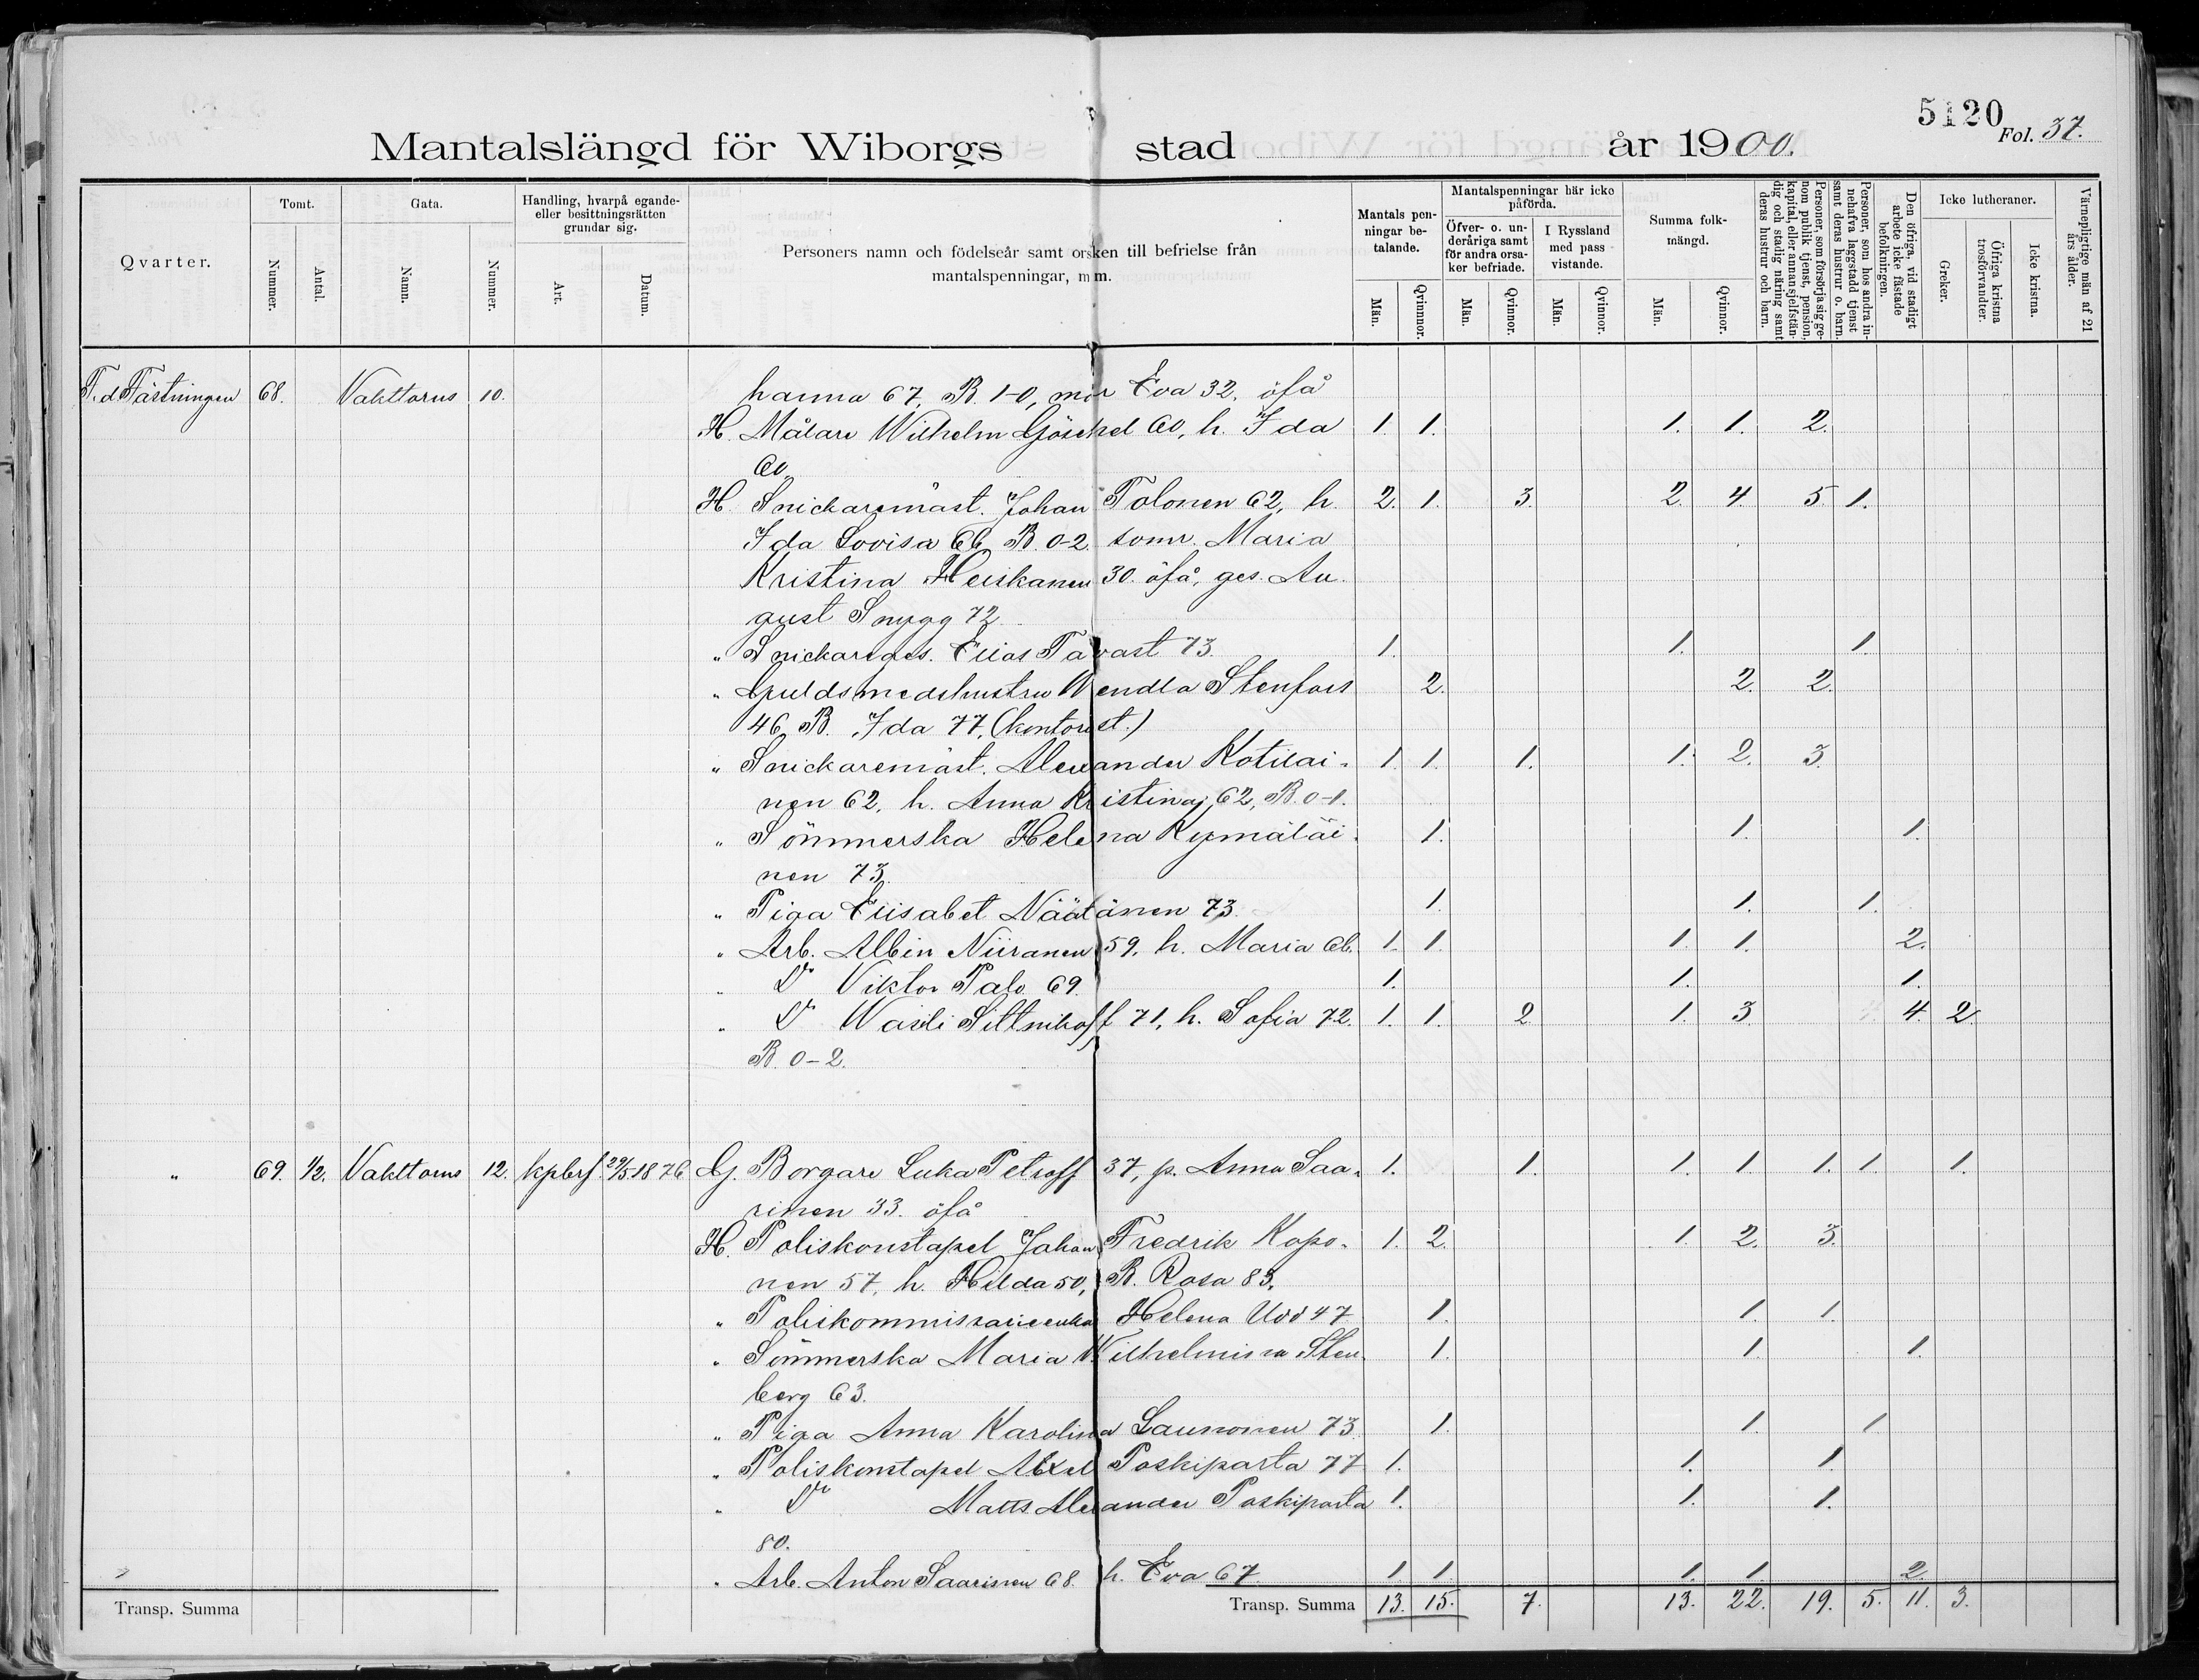 5120
Fol. 37.
Mantalslängd för Wiborgs stad år 1900.
Qvarter.
Tomt.
Nummer.
Antal.
Gata.
Namn.
Nummer.
Handling, hvarpå egande- eller besittningsrätten grundar sig.
Art.
Datum.
Personers namn och födelseår samt orsken till befrielse från mantalspenningar, m m.
Mantals penningar betalande.
Män.
Qvinnor.
Mantalspenningar här icke påförda.
Öfver- o. underåriga samt för andra orsaker befriade.
Män.
Qvinnor.
I Ryssland med pass vistande.
Män.
Qvinnor.
Summa folkmängd.
Män.
Qvinnor.
Personer, som försörja sig genom publik tjenst, pension, kapital, eller annan sjelfständig och stadig näring samt deras hustrur och barn.
Personer, som hos andra innehafva laggstadd tjenst samt deras hustrur o. barn.
Den öfriga, vid stadigt arbete icke fästade befolkningen.
Icke lutheraner.
Greker.
Öfriga kristna trosförvandter.
Icke kristna.
Värnepligtige män af 21 års ålder.
F.d Fästningen 68. Vakttorns 10. hanna 67, B. 1-0, mor Eva 32. öfå
H. Målare Wilhelm Göschel 60, h. Ida 1. 1. 1. 1. 2.
60.
H. Snickaremäst. Johan Tolonen 62, h. 2. 1. 3. 2. 4. 5. 1.
Ida Lovisa 66 B. 0-2. somr. Maria
Kristina Heiskanen 30. öfå, ges. Au-
gust Snygg 72
" Snickareges. Elias Tavast 73. 1. 1. 1.
" Guldsmedshustru Wendla Stenfors 2. 2. 2.
46, B. Ida 77, (kontorist.)
" Snickaremäst. Alexander Kotilai- 1 1. 1. 1. 2. 3.
nen 62, h. Anna Kristina, 62, B. 0-1.
" Sömmerska Helena Kymäläi- 1. 1. 1.
nen 73.
" Piga Elisabet Näätänen 73. 1. 1. 1.
" Arb. Albin Niiranen 59, h. Maria 66. 1. 1. 1. 1. 2.
" Do Viktor Palo 69. 1. 1. 1.
" Do Wasili Sittnikoff 71, h. Sofia 72. 1. 1. 2. 1. 3. 4. 2.
B. 0-2.
" 69. 1/2. Vakttorns 12. kpbrf. 29/5.1876 G. Borgare Luka Petroff 37, p. Anna Saa- 1. 1. 1. 1. 1. 1. 1.
rinen 33. öfå
H. Poliskonstapel Johan Fredrik Kopo- 1. 2. 1 2. 3.
nen 57, h. Hilda 50, B. Rosa 83,
" Poliskommissarieenka Helena Udd 47 1. 1. 1.
" Sömmerska Maria Wilhelmina Sten- 1. 1. 1.
berg 63.
" Piga Anna Karolina Launonen 73 1. 1. 1
" Poliskonstapel Axel Paskiparta 77 1. 1. 1.
" Do Matts Alexander Paskiparta 1. 1. 1.
80.
" Arb. Anton Saarinen 68. h. Eva 67 1. 1. 1. 1. 2.
Transp. Summa
Transp. Summa 13. 15. 7. 13. 22. 19. 5. 11. 3.